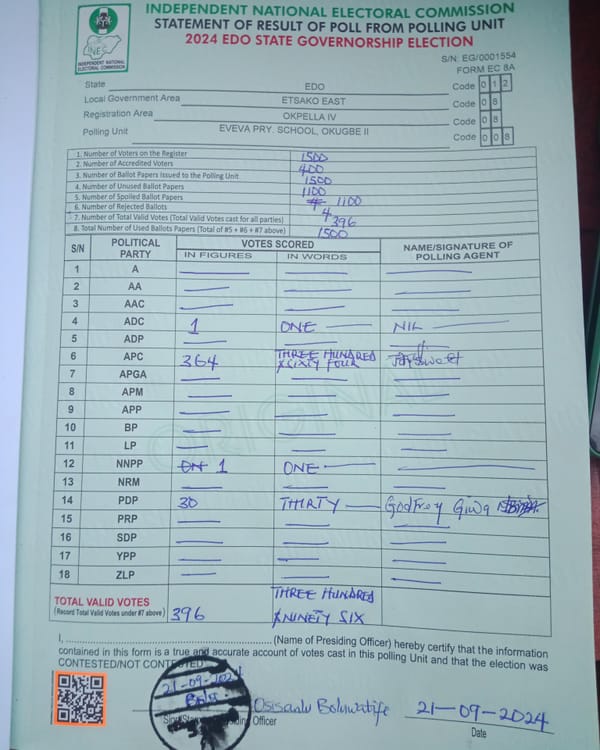 INDEPENDENT NATIONAL ELECTORAL COMMISSION
STATEMENT OF RESULT OF POLL FROM POLLING UNIT
2024 EDO STATE GOVERNORSHIP ELECTION
INEC
INDEPENDENT NATIONAL ELECTORAL COMMISSION
S/N: EG/0001554
FORM EC 8A
State EDO Code 0 1 2
Local Government Area ETSAKO EAST Code 0 8
Registration Area OKPELLA IV Code 0 8
Polling Unit EVEVA PRY. SCHOOL, OKUGBE II Code 0 0 8
1. Number of Voters on the Register 1500
2. Number of Accredited Voters 400
3. Number of Ballot Papers Issued to the Polling Unit 1500
4. Number of Unused Ballot Papers 1100
5. Number of Spoiled Ballot Papers 1100
6. Number of Rejected Ballots 4
7. Number of Total Valid Votes (Total Valid Votes cast for all parties) 396
8. Total Number of Used Ballots Papers (Total of #5 + #6 + #7 above) 1500
S/N POLITICAL PARTY VOTES SCORED NAME/SIGNATURE OF POLLING AGENT
IN FIGURES IN WORDS
1 A
2 AA
3 AAC
4 ADC 1 ONE NIL
5 ADP
6 APC 364 THREE HUNDRED & SIXTY FOUR
7 APGA
8 APM
9 APP
10 BP
11 LP
12 NNPP 1 ONE
13 NRM
14 PDP 30 THIRTY Godfrey Giwa
15 PRP
16 SDP
17 YPP
18 ZLP
TOTAL VALID VOTES 396 THREE HUNDRED & NINETY SIX
(Record Total Valid Votes under #7 above)
ORIGINAL
I, ........................ (Name of Presiding Officer) hereby certify that the information
contained in this form is a true and accurate account of votes cast in this polling Unit and that the election was
CONTESTED/NOT CONTESTED
21-09-2024
Osisanlu Boluwatife 21-09-2024
Officer Date